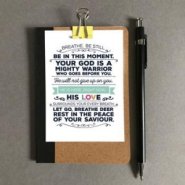 BREATHE, BE STILL.
BE IN THIS MOMENT.
YOUR GOD IS A
MIGHTY WARRIOR
WHO GOES BEFORE YOU.
He will not give up on you.
HIS LOVE
SURROUNDS YOUR EVERY BREATH.
LET GO, BREATHE DEEP
REST IN THE PEACE
OF YOUR SAVIOUR.